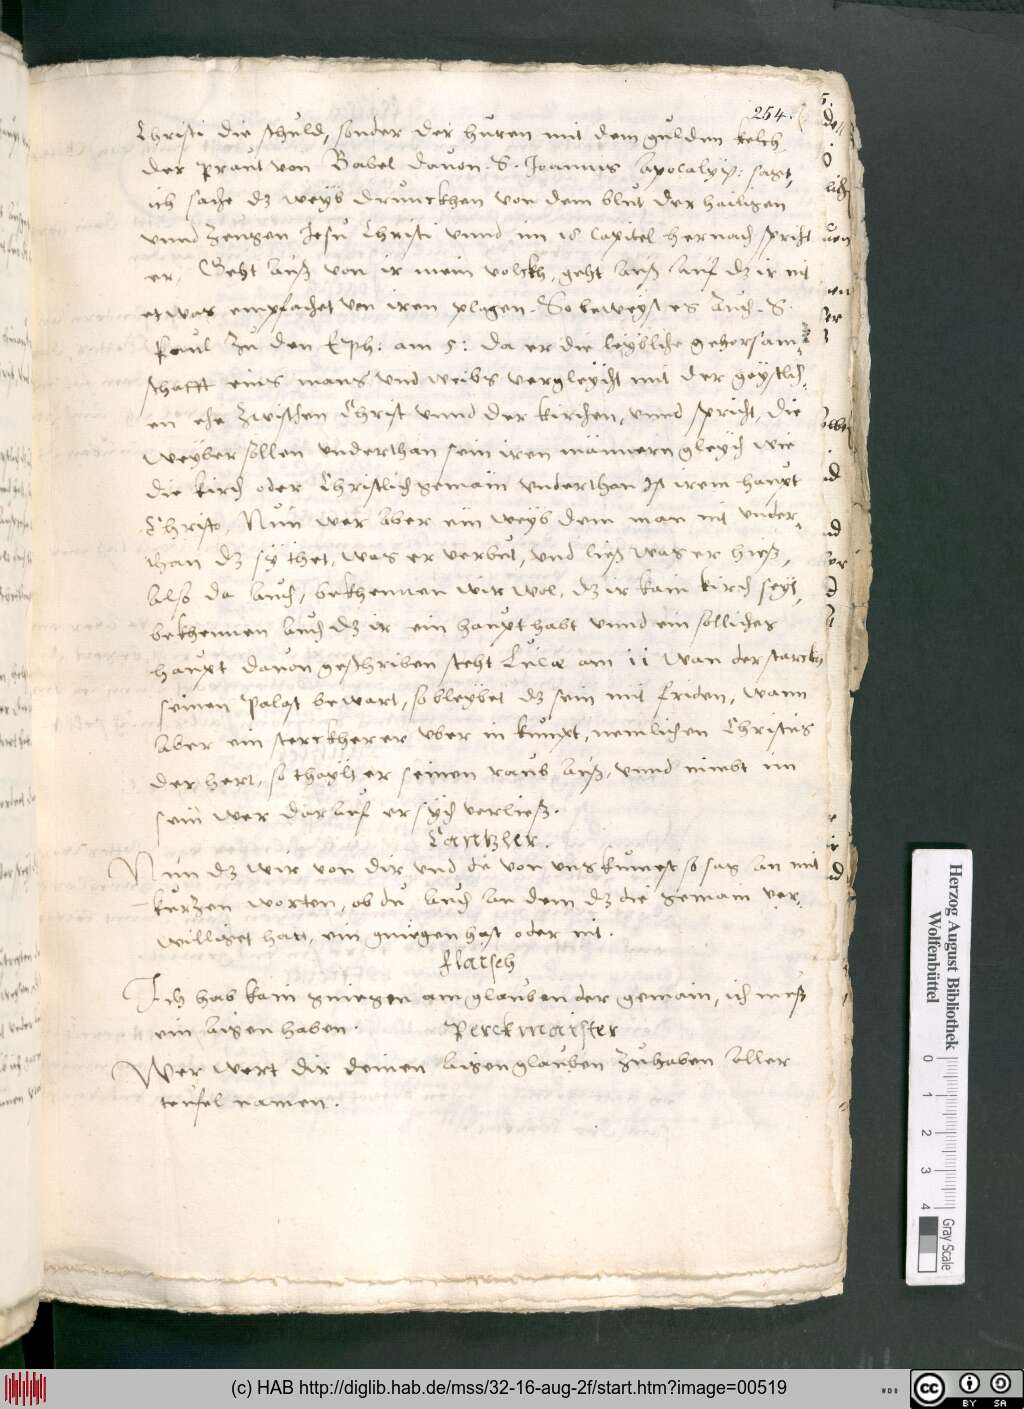 254.
Christi die schuld, sonder der huren mit dem gulden kelch,
der praut von Babel davon. S. Joannis Apocalyps: sagt,
ich sahe dz weyb drunckhen von dem blut der hailigen
unnd zeugen Jesu Christi unnd im 18 Capitel hernach spricht
er, Geht auß von ir mein volckh, geht auß auf dz ir nit
etwas empfachet von iren plagen. So beweyst es auch. S.
Paul zu den Eph: am 5: da er die leybliche gehorsam=
schafft eins mans und weibs vergleycht mit der geystlich=
en ehe zwischen Christ unnd der kirchen, unnd spricht, die
weyber sollen underthan sein iren männern gleych wie
die kirch oder Christlich gemain underthan ist irem haupt
Christo. Nun wer aber ein weyb dem man nit under=
than dz sy thet, was er verbut, und ließ was er hieß,
also da auch, bekhennen wir wol, dz ir kain kirch seyt,
bekhennen auch dz ir ein haupt habt unnd ein solliches
haupt davon geschriben steht Lucæ am 11 Wan der starckh
seinen palast bewart, so bleybet dz sein mit friden, wann
aber ein sterckherer uber in kumpt, nemlichen Christus
der herr, so thaylt er seinen raub auß, unnd nimbt im
sein wer darauf er sych verließ.
Cantzler.
Nun dz wir von dir und du von uns kumest so sag an mit
kurzen worten, ob du auch an dem dz die gemain ver=
williget hatt, ein gniegen hast oder nit.
flaisch
Ich hab kain gniegen am glauben der gemain, ich muß
ein aigen haben.
Perckmaister
Wer wert dir deinen aigen glauben zuhaben aller
teufel namen.
Herzog August Bibliothek
Wolfenbüttel
0 1 2 3 4
Gray Scale
(c) HAB http://diglib.hab.de/mss/32-16-aug-2f/start.htm?image=00519
WDB
cc BY SA